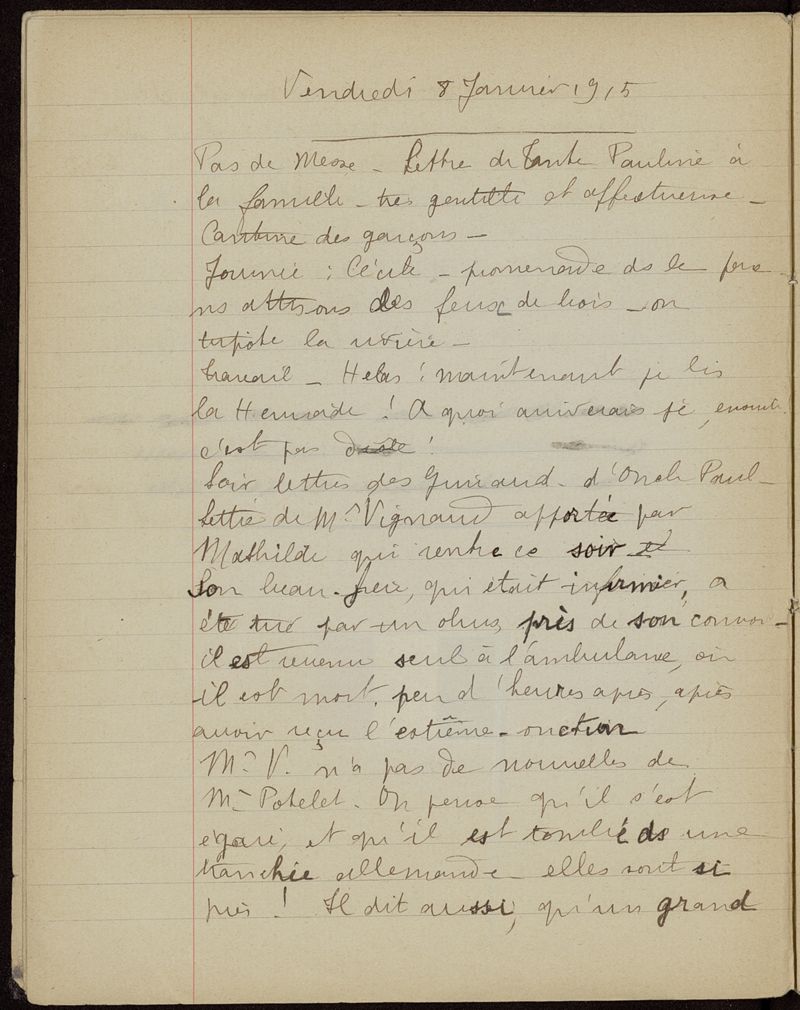 Vendredi 8 Janvier 1915
Pas de Messe - Lettre de Tante Pauline à
la famille - très gentille et affectueuse -
Cantine des garçons -
Journée : Cécile - promenade ds le parc
ns attisons des feux de bois - on
tripote la rivière -
Travail - Hélas ! maintenant je lis
la Henriade ! A quoi arriverais-je, ensuite !
c'est pas drôle !
Soir lettres des Guiraud - d'Oncle Paul -
Lettre de Mr Vignaud apportée par
Mathilde qui rentre ce soir -
Son beau-frère, qui était infirmier, a
été tué par un obus, près de son convoi -
il est revenu seul à l'ambulance, où
il est mort, peu d'heures après, après
avoir reçu l'extrême-onction
Mr V. n'a pas de nouvelles de
Mr Potelet. On pense qu'il s'est
égaré, et qu'il est tombé ds une
tranchée allemande - elles sont si
près ! Il dit aussi, qu'un grand